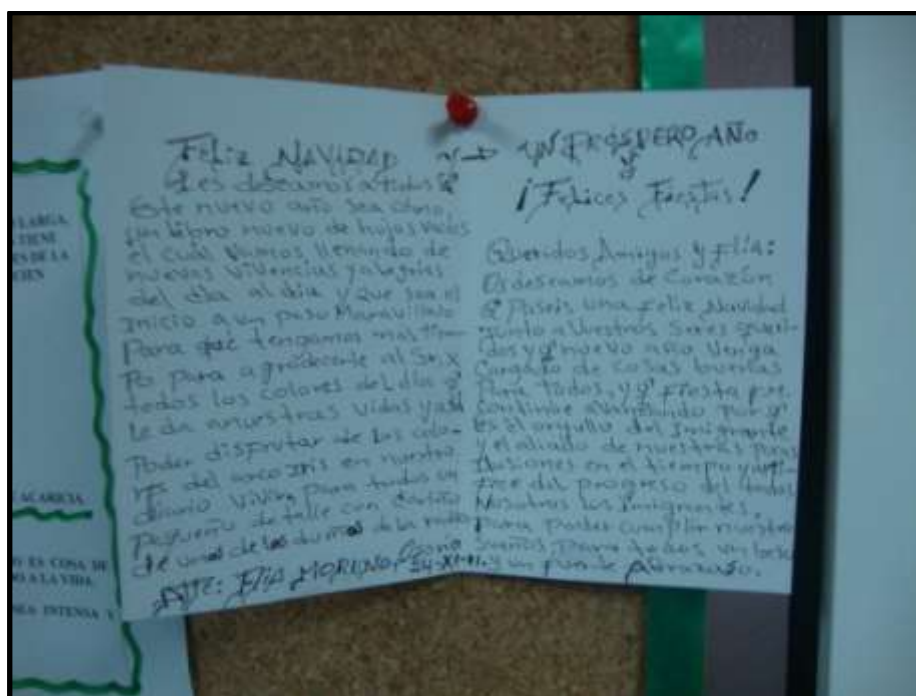 LARGA.
TIENE
ES DE LA
CIEN
ACARICIA
ES COSA DE
O A LA VIDA.
SEA INTENSA Y
Feliz NAVIDAD
Les deseamos a todos q'
Este nuevo año sea como,
un libro nuevo de hojas
el cuál vamos llenando de
nuevas vivencias y alegrias
del dia al dia y que sea el
inicio a un paso Maravilloso
Para que tengamos mas tiem-
po para agradecerle al Sr. x
todos los colores del día q'
le da a nuestras vidas y asi
Poder disfrutar de los colo-
res del arco iris en nuestro
diario vivir, para todos un
pequeño detalle con cariño
de unos de los de la
ATTE: Flia MORENO, Osorio
UN PRÓSPERO AÑO
y
¡Felices Fiestas!
Queridos Amigos y Flia:
Os deseamos de Corazón
q' Paseis una Feliz Navidad
junto a Vuestros Seres queri-
dos y q' nuevo año Venga
Cargado de cosas buenas
Para todos, y q' Fiesta
Continue avanzando por q'
es el orgullo del Imigrante
y el aliado de nuestras
ilusiones en el tiempo y
del progreso de todos
Nosotros los Imigrantes.
para poder cumplir nuestro
Sueños, para todos un beso
y un fuerte Abrazaso.